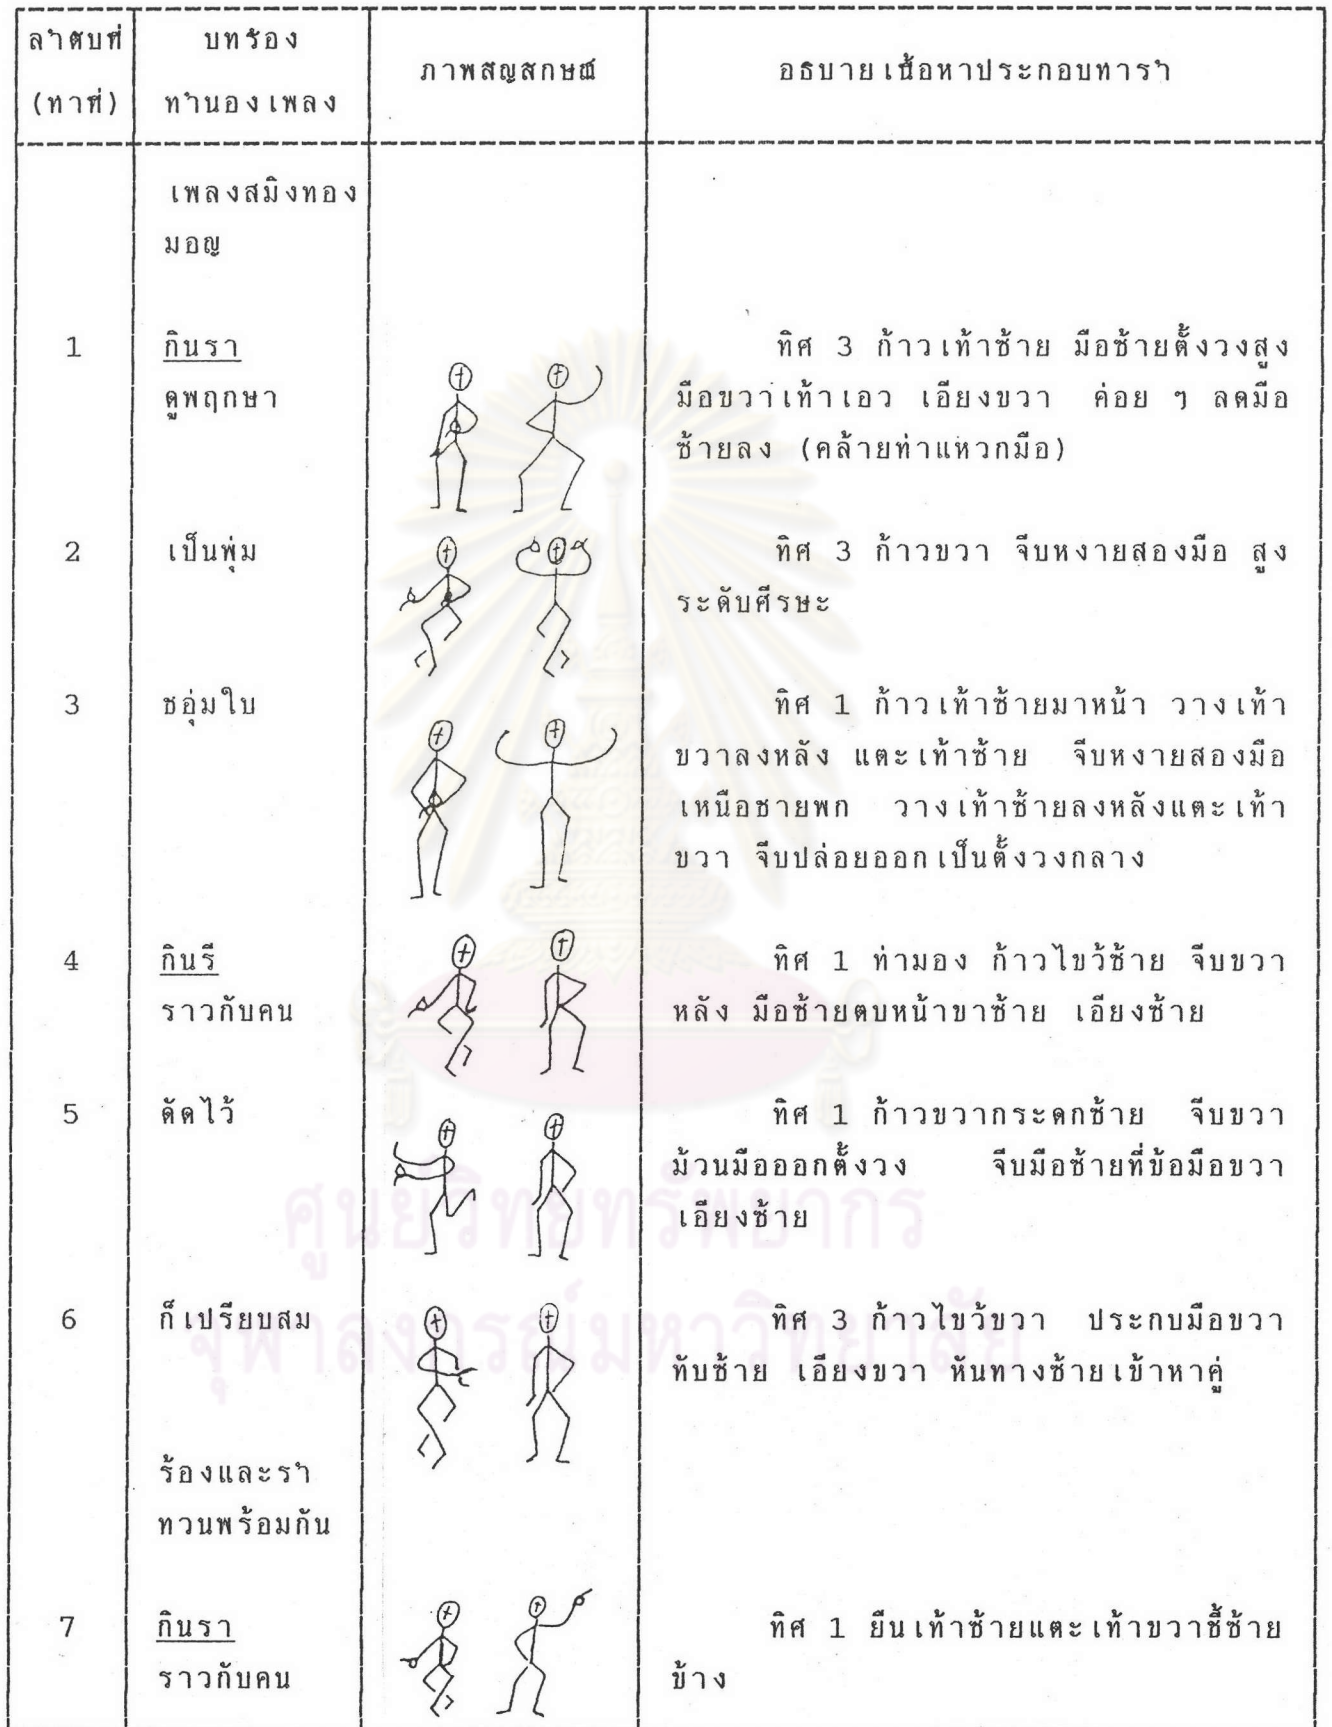 ลำดับที่
(ท่าที่)
บทร้อง
ทำนองเพลง
ภาพสัญลักษณ์
อธิบายเนื้อหาประกอบท่ารำ
เพลงสมิงทอง
มอญ
1
กินรา
ดูพฤกษา
ทิศ 3 ก้าวเท้าซ้าย มือซ้ายตั้งวงสูง
มือขวาเท้าเอว เอียงขวา ค่อย ๆ ลดมือ
ซ้ายลง (คล้ายท่าแหวกมือ)
2
เป็นพุ่ม
ทิศ 3 ก้าวขวา จีบหงายสองมือ สูง
ระดับศีรษะ
3
ชอุ่มใบ
ทิศ 1 ก้าวเท้าซ้ายมาหน้า วางเท้า
ขวาลงหลัง แตะเท้าซ้าย จีบหงายสองมือ
เหนือชายพก วางเท้าซ้ายลงหลังแตะเท้า
ขวา จีบปล่อยออกเป็นตั้งวงกลาง
4
กินรี
ราวกับคน
ทิศ 1 ท่ามอง ก้าวไขว้ซ้าย จีบขวา
หลัง มือซ้ายตบหน้าขาซ้าย เอียงซ้าย
5
ดัดไว้
ทิศ 1 ก้าวขวากระดกซ้าย จีบขวา
ม้วนมือออกตั้งวง จีบมือซ้ายที่ข้อมือขวา
เอียงซ้าย
6
ก็เปรียบสม
ทิศ 3 ก้าวไขว้ขวา ประกบมือขวา
ทับซ้าย เอียงขวา หันทางซ้ายเข้าหาคู่
ร้องและรำ
ทวนพร้อมกัน
7
กินรา
ราวกับคน
ทิศ 1 ยืนเท้าซ้ายแตะเท้าขวาชี้ซ้าย
ข้าง
ศูนย์วิทยทรัพยากร
จุฬาลงกรณ์มหาวิทยาลัย